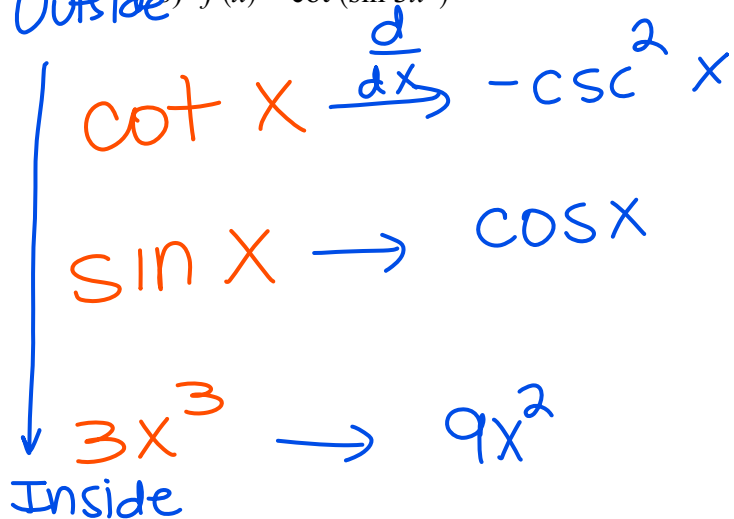 Outside
cot x d/dx → -csc² x
sin x → cos x
3x³ → 9x²
Inside